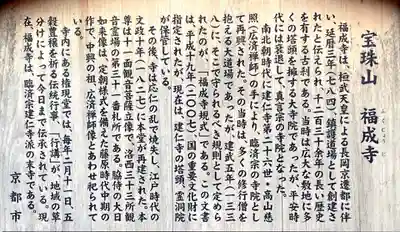 宝珠山　福成寺
ふくじょうじ
福成寺は、桓武天皇による長岡京遷都に伴
い、延暦三年（七八四）鎮護道場として創建さ
れたと伝えられ、千二百三十余年の長い歴史
を有する古刹である。当時は広大な敷地に多
くの塔頭を擁する大寺院であったが、平安時
代には衰退して真言宗の寺院となった。
南北朝時代に建仁寺第三十六世・高山慈
照（広済禅師）の手により、臨済宗の寺院とし
て再興された。その当時は、多くの修行僧を
抱える大道場であったが、建武五年（一三三
八）に、そこで守られるべき規則として定めら
れたのが、「福成寺規式」である。この文書
は、平成十九年（二〇〇七）国の重要文化財に
指定されたが、現在は、建仁寺の塔頭、霊洞院
が保管している。
その後、寺は応仁の乱で焼失し、江戸時代の
文政十年（一八二七）に本堂が再建された。本
尊は十一面観音菩薩立像で、洛西三十三所観
音霊場の第三十一番札所である。脇侍の大日
如来像は、定朝様式を備えた藤原時代中期の
作で、中興の祖、広済禅師像とあわせ祀られて
いる。
寺内にある権現堂では、毎年二月十一日、五
穀豊穣を祈る伝統行事「（行講）」が、地域の草
分けによって今日まで伝承されている。現
在、福成寺は、臨済宗建仁寺派の末寺である。
京都市